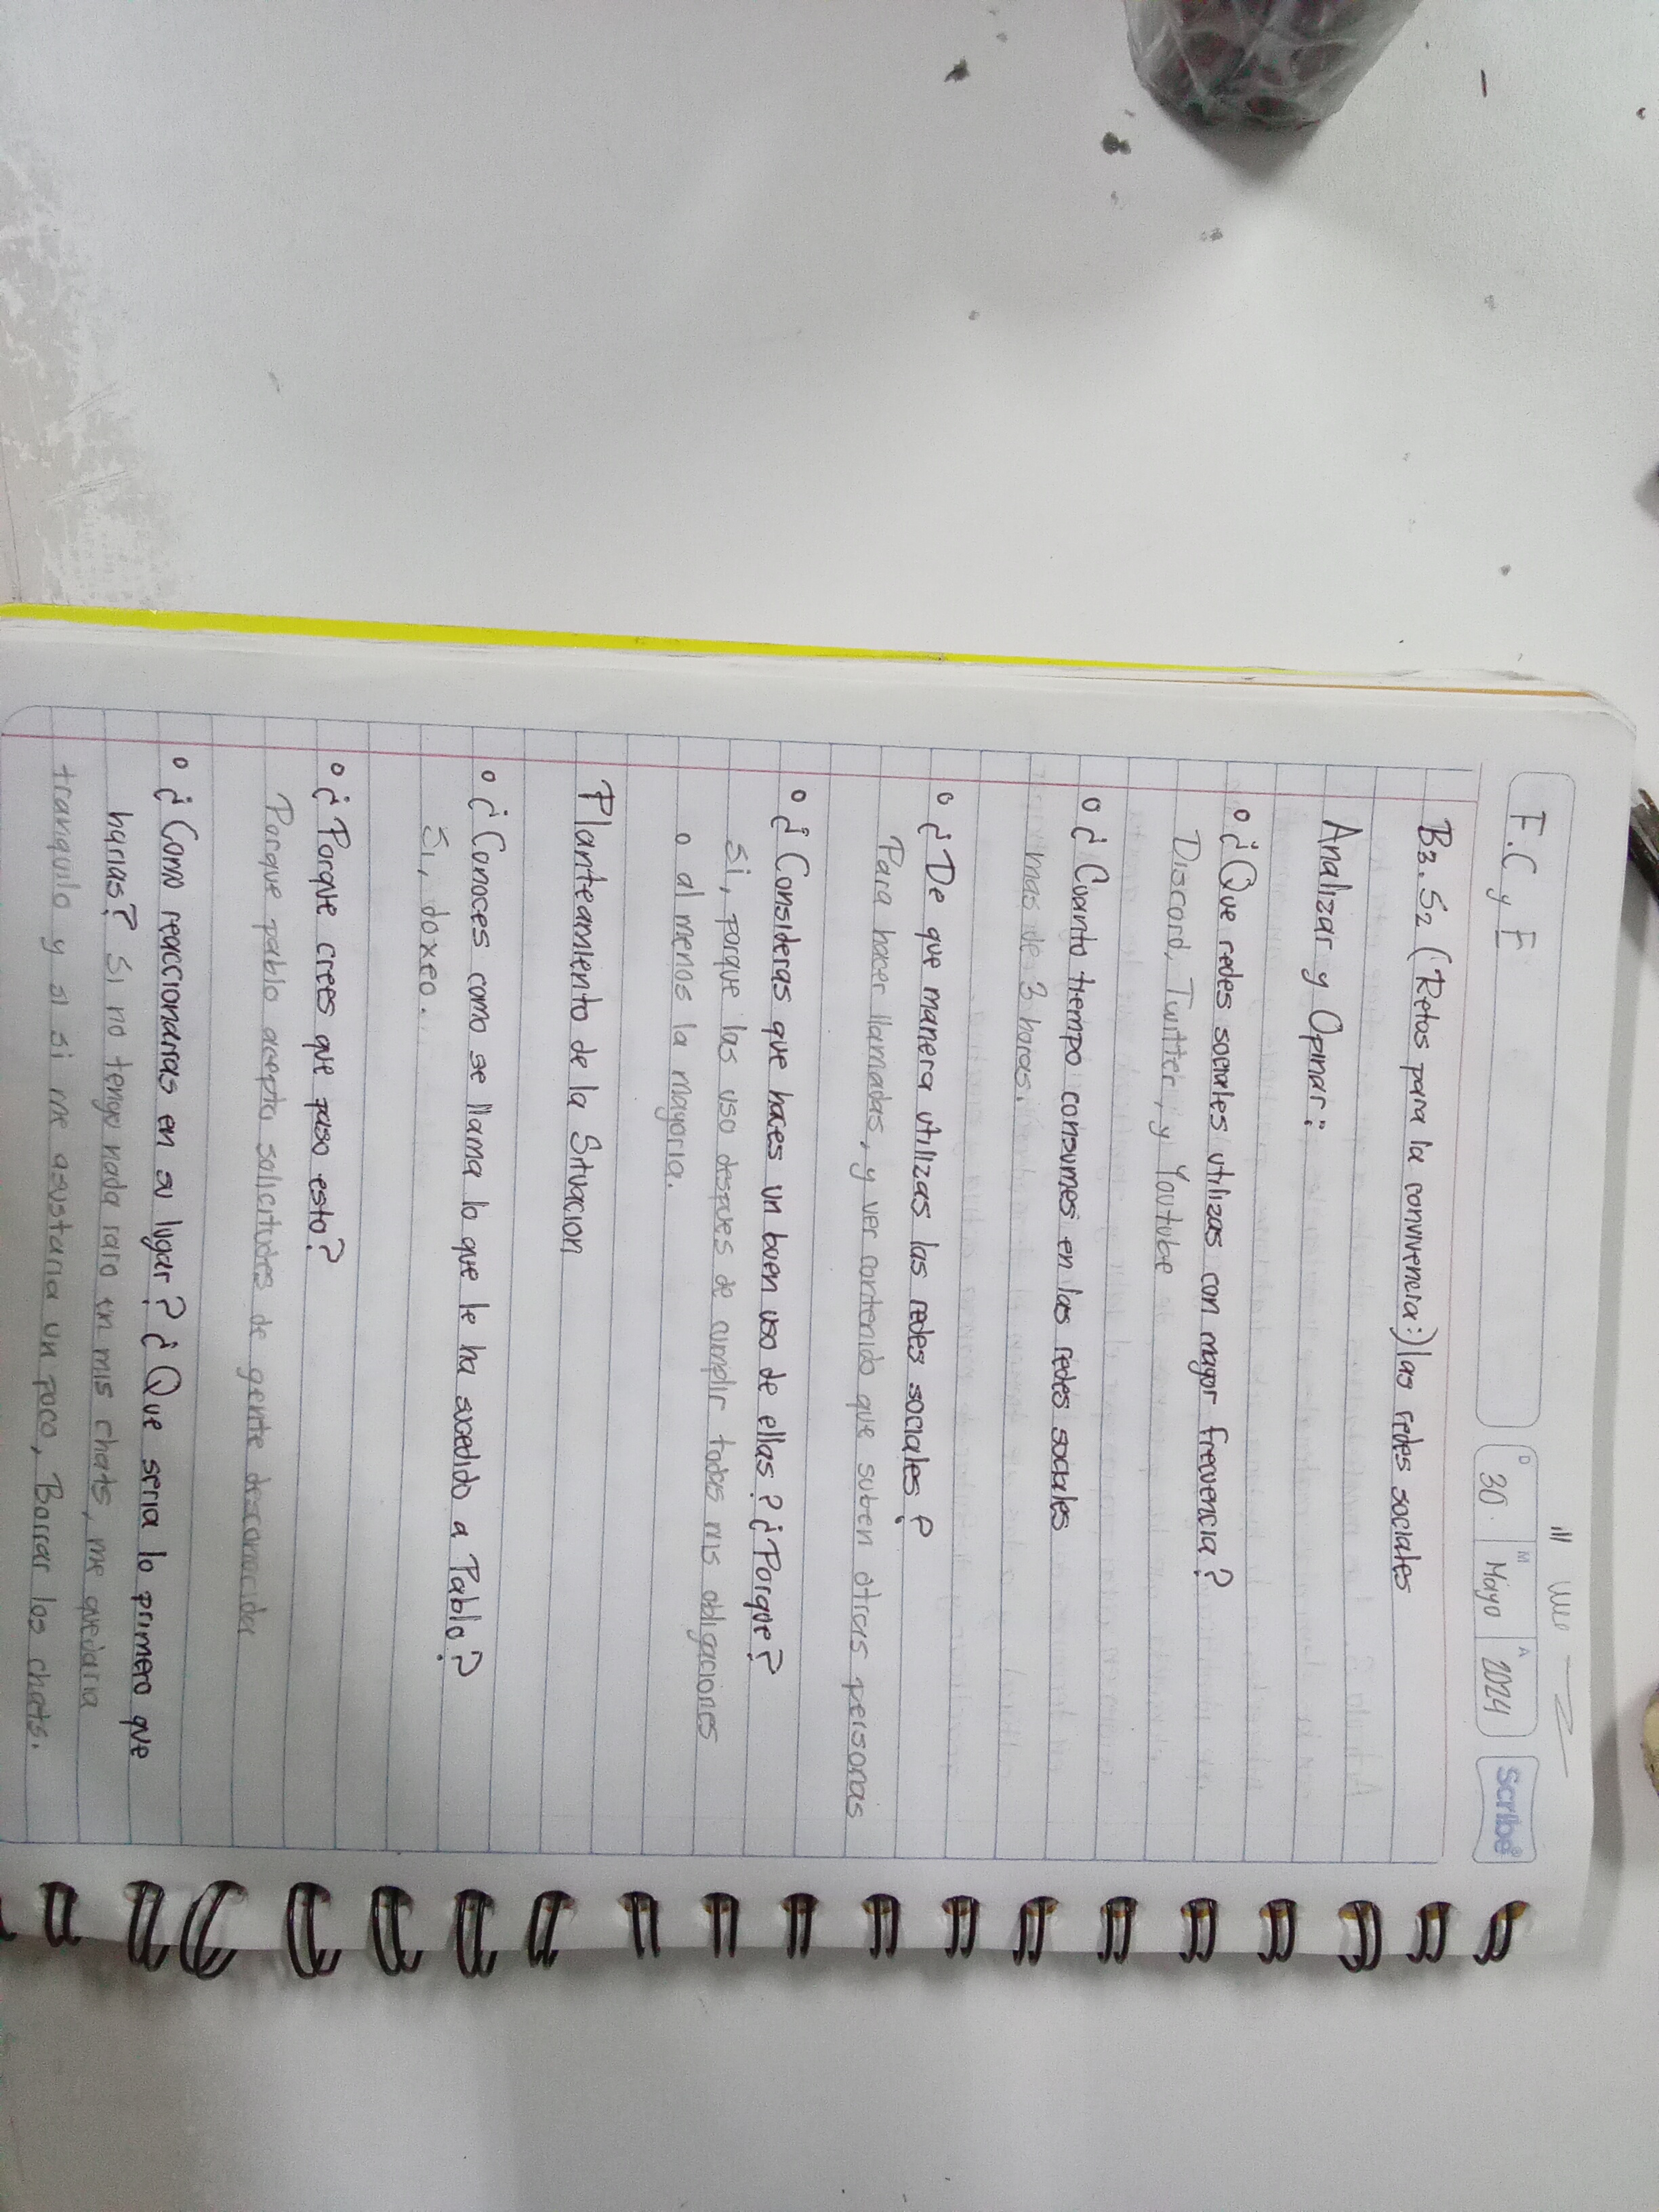 F.C y E
D M A
30 Mayo 2024
Scribe
B3. S2 (Retos para la convivencia:) las redes sociales
Analizar y Opinar:
° ¿Que redes sociales utilizas con mayor frecuencia?
Discord, Twitter, y Youtube
° ¿Cuanto tiempo consumes en las redes sociales
mas de 3 horas.
° ¿De que manera utilizas las redes sociales?
Para hacer llamadas, y ver contenido que suben otras personas
° ¿Consideras que haces un buen uso de ellas? ¿Porque?
Si, porque las uso despues de cumplir todas mis obligaciones
o al menos la mayoria.
Planteamiento de la Situacion
° ¿Conoces como se llama lo que le ha sucedido a Pablo?
Si, doxeo.
° ¿Porque crees que paso esto?
Porque pablo acepto solicitudes de gente desconocida
° ¿Como reaccionarias en su lugar? ¿Que seria lo primero que
harias? Si no tengo nada raro en mis chats, me quedaria
tranquilo y si si me asustaria un poco, Borrar los chats.